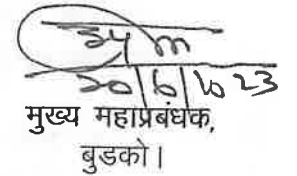 20/6/2023
मुख्य महाप्रबंधक,
बुडको।